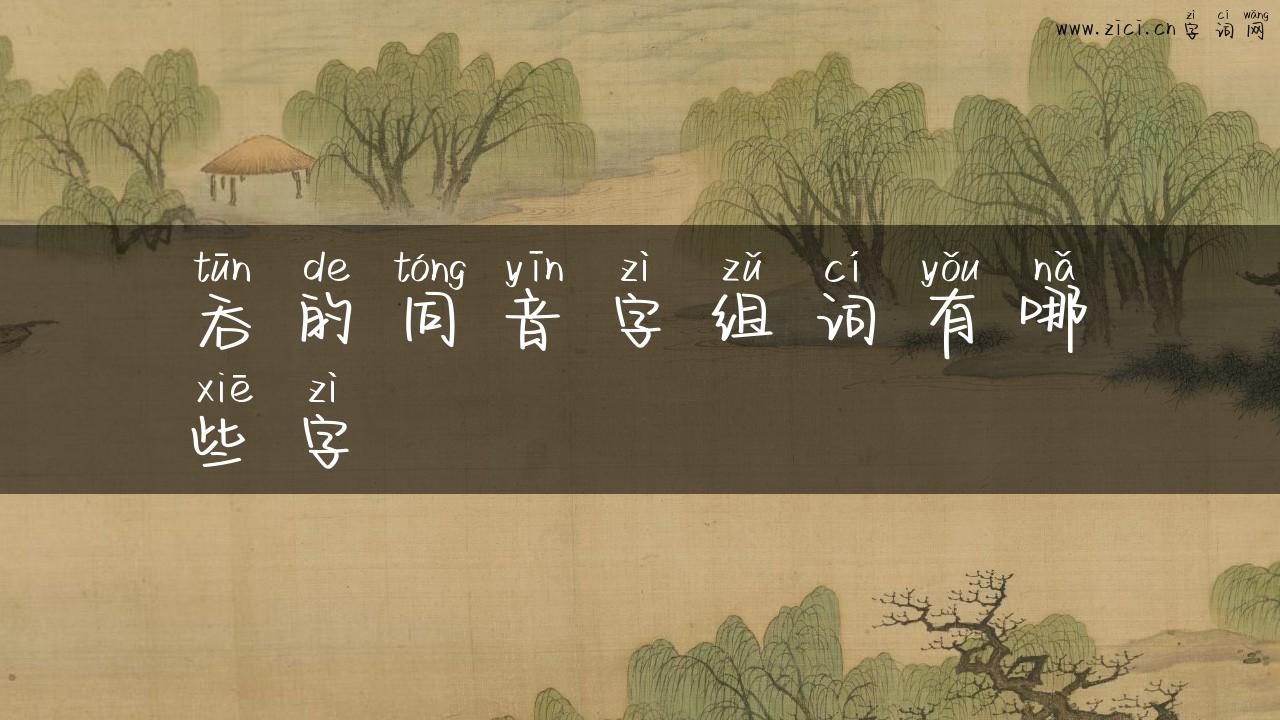 zì cí wǎng
www.zici.cn 字 词 网
tūn de tóng yīn zì zǔ cí yǒu nǎ
吞 的 同 音 字 组 词 有 哪
xiē zì
些 字